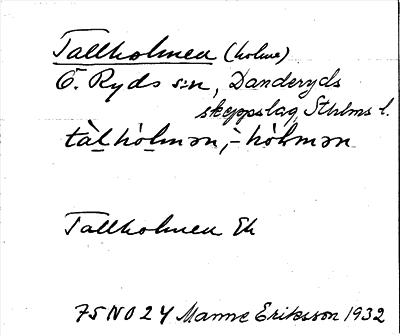 Tallholmen (holme)
Ö. Ryds s:n, Danderyds
skeppslag, Sthlms l.
tàlhòlmən, -hòlmən
Tallholmen Ek
75 NO 2 Y Manne Eriksson 1932